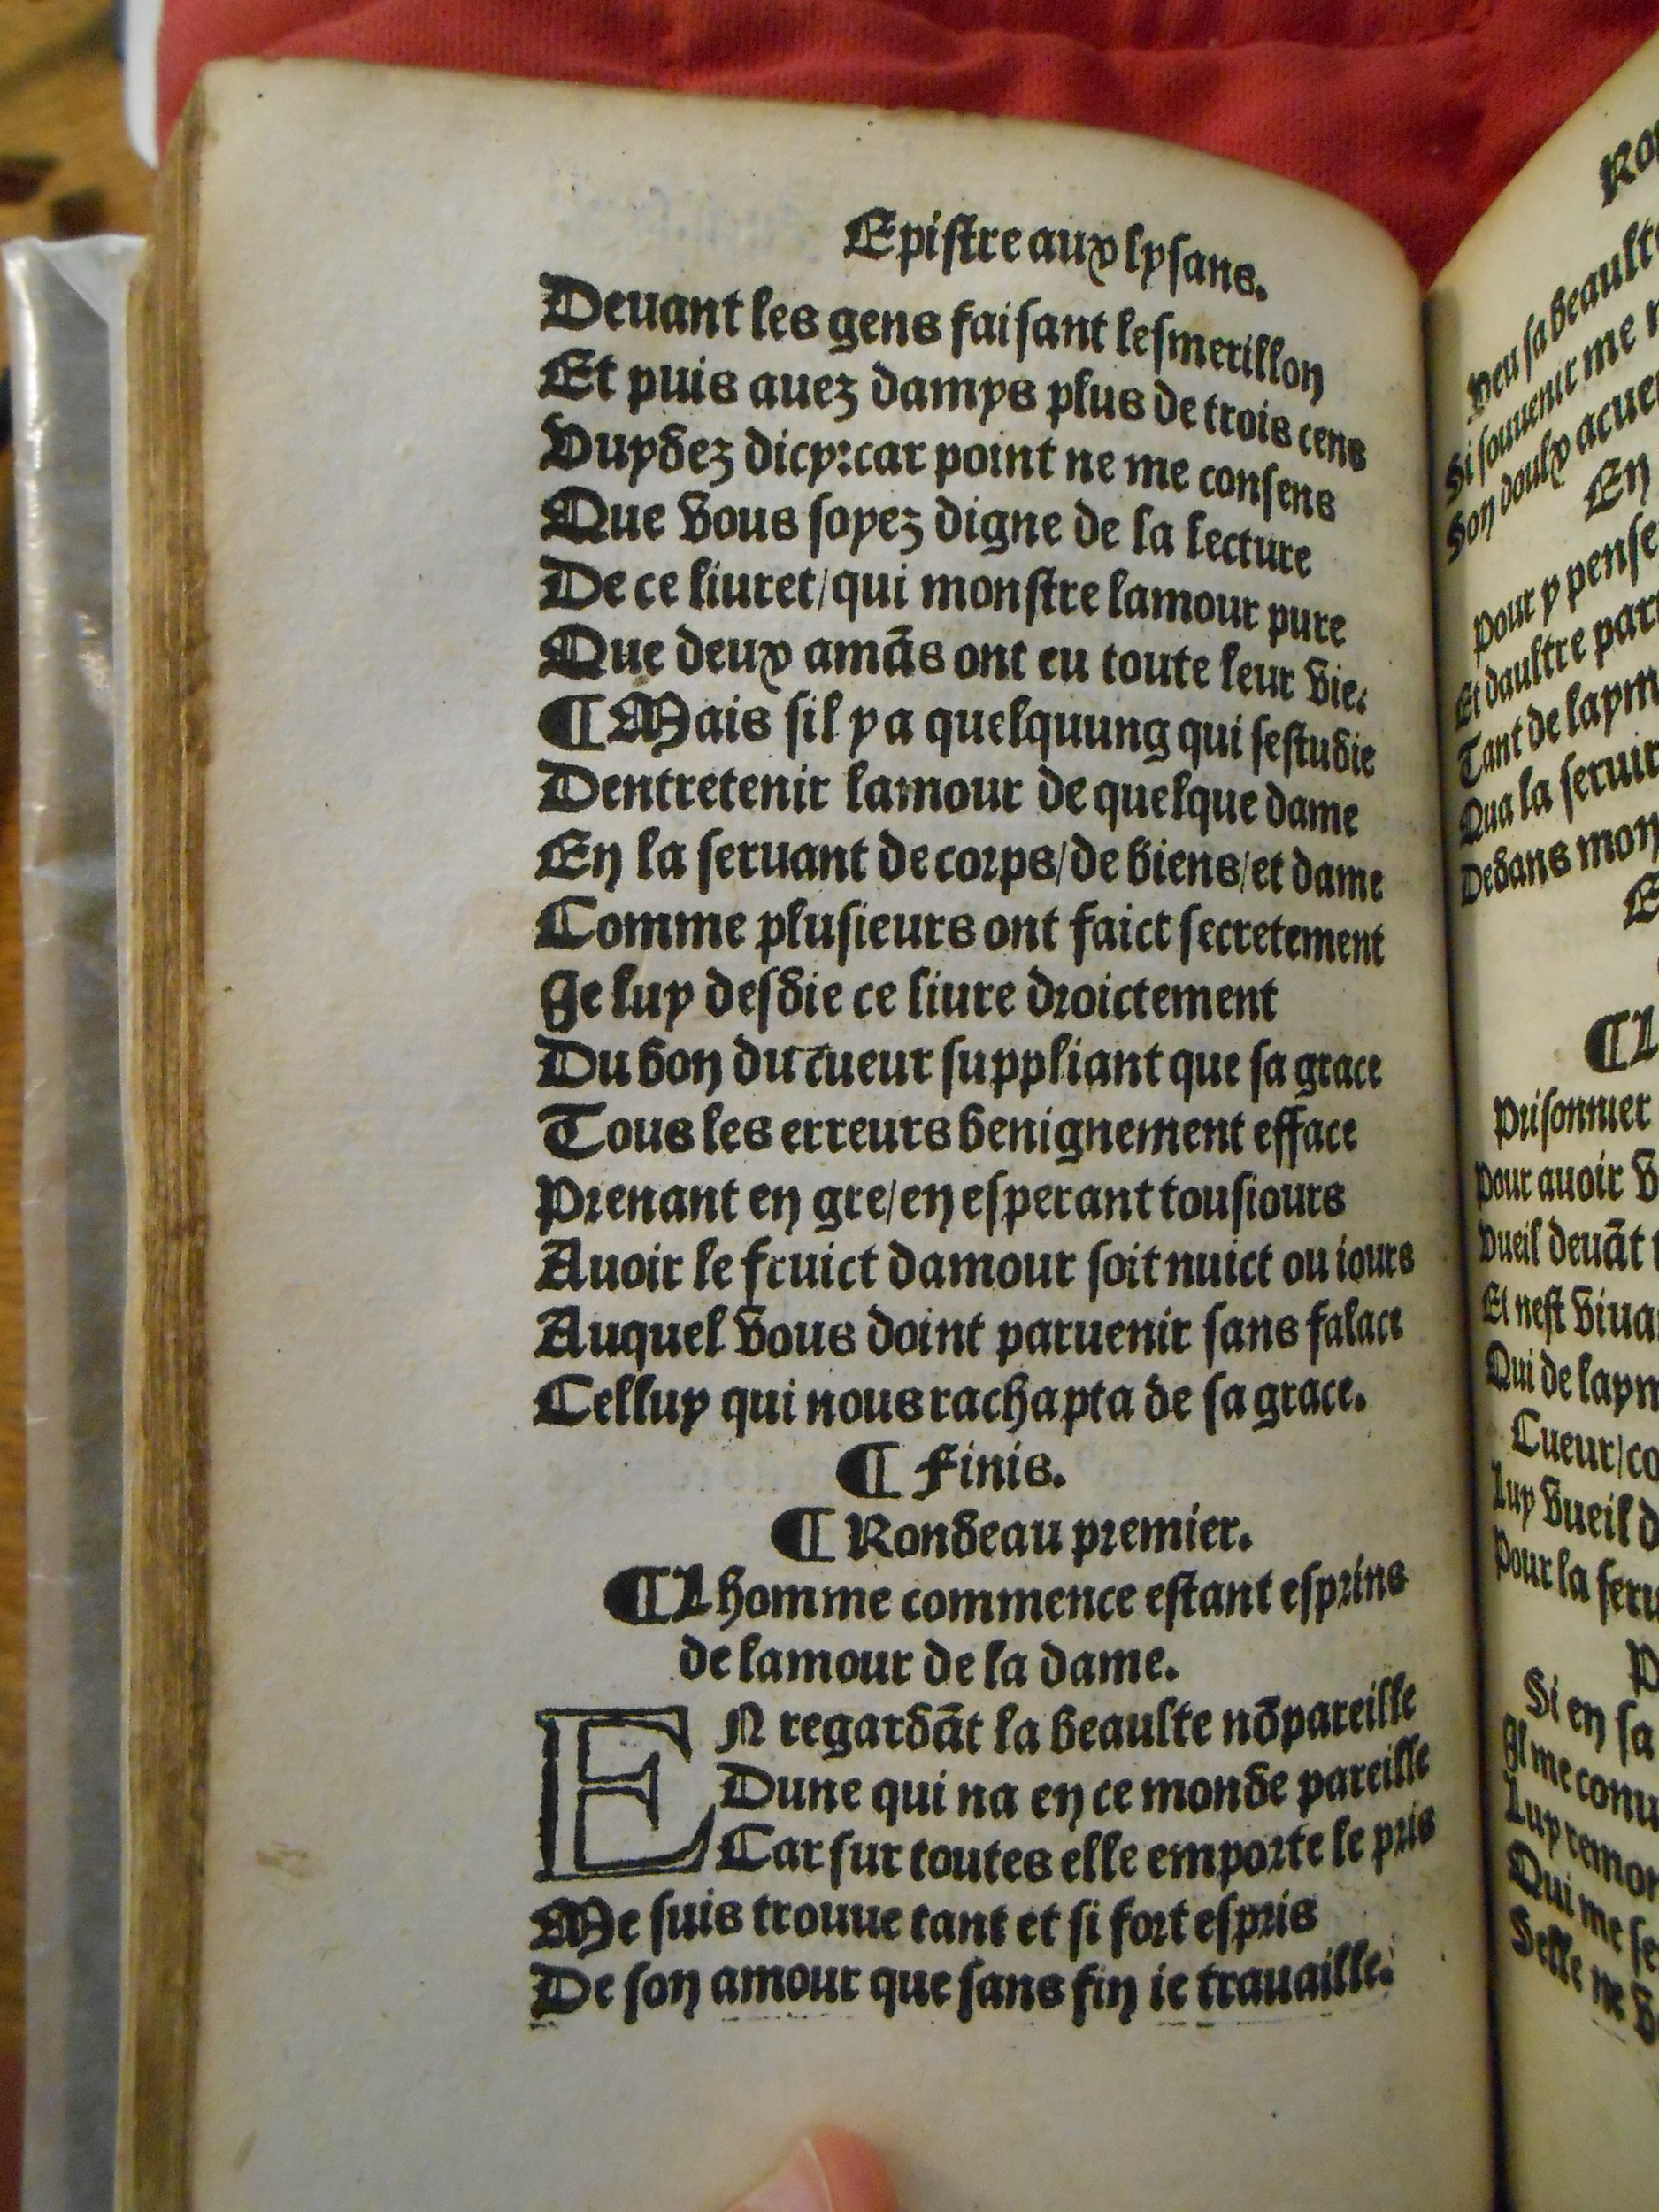 Epistre aux lysans.
Deuant les gens faisant lesmerillon
Et puis auez damys plus de trois cens
Vuydez dicy:car point ne me consens
Que vous soyez digne de la lecture
De ce liuret/qui monstre lamour pure
Que deux amãs ont eu toute leur vie.
¶Mais sil y a quelquung qui sestudie
Dentretenir lamour de quelque dame
En la seruant de corps/de biens/et dame
Comme plusieurs ont faict secretement
Je luy desdie ce liure droictement
Du bon du cueur suppliant que sa grace
Tous les erreurs benignement efface
Prenant en gre/en esperant tousiours
Auoir le fruict damour soit nuict ou iours
Auquel vous doint paruenir sans falace
Celluy qui nous rachapta de sa grace.
¶ Finis.
¶ Rondeau premier.
¶Lhomme commence estant esprins
de lamour de la dame.
EN regardãt la beaulte nõpareille
Dune qui na en ce monde pareille
Car sur toutes elle emporte le pris
Me suis trouue tant et si fort espris
De son amour que sans fin ie trauaille.
Veu sa beaulte
Si souuenir me
Son doulx acuei
En
Pour y pense
Et daultre par
Tant de laym
Qua la seruir
Dedans mon
¶L
Prisonnier
Pour auoir v
Vueil deuãt
Et nest viua
Qui de laym
Cueur/co
Luy vueil d
Pour la seru
P
Si en sa
Il me conu
Luy remon
Qui me se
Selle ne v